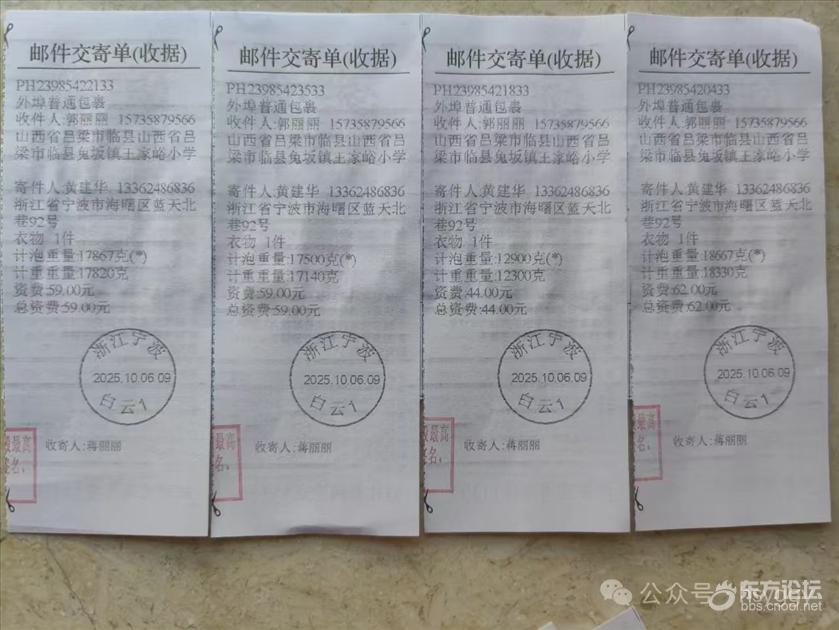 邮件交寄单(收据)
PH23985422133
外埠普通包裹
收件人:郭丽丽 15735879566
山西省吕梁市临县山西省吕
梁市临县兔坂镇王家峪小学
寄件人:黄建华 13362486836
浙江省宁波市海曙区蓝天北
巷92号
衣物 1件
计泡重量:17867克(*)
计重重量:17820克
资费:59.00元
总资费:59.00元
浙江宁波
2025.10.06.09
白云1
收寄人:蒋丽丽
最高
名:
邮件交寄单(收据)
PH23985423533
外埠普通包裹
收件人:郭丽丽 15735879566
山西省吕梁市临县山西省吕
梁市临县兔坂镇王家峪小学
寄件人:黄建华 13362486836
浙江省宁波市海曙区蓝天北
巷92号
衣物 1件
计泡重量:17500克(*)
计重重量:17140克
资费:59.00元
总资费:59.00元
浙江宁波
2025.10.06.09
白云1
收寄人:蒋丽丽
最高
名:
邮件交寄单(收据)
PH23985421833
外埠普通包裹
收件人:郭丽丽 15735879566
山西省吕梁市临县山西省吕
梁市临县兔坂镇王家峪小学
寄件人:黄建华 13362486836
浙江省宁波市海曙区蓝天北
巷92号
衣物 1件
计泡重量:12900克(*)
计重重量:12300克
资费:44.00元
总资费:44.00元
浙江宁波
2025.10.06.09
白云1
收寄人:蒋丽丽
最高
名:
邮件交寄单(收据)
PH23985420433
外埠普通包裹
收件人:郭丽丽 15735879566
山西省吕梁市临县山西省吕
梁市临县兔坂镇王家峪小学
寄件人:黄建华 13362486836
浙江省宁波市海曙区蓝天北
巷92号
衣物 1件
计泡重量:18667克(*)
计重重量:18330克
资费:62.00元
总资费:62.00元
浙江宁波
2025.10.06.09
白云1
收寄人:蒋丽丽
最高
名:
公众号
东方论坛
bbs.cnool.net